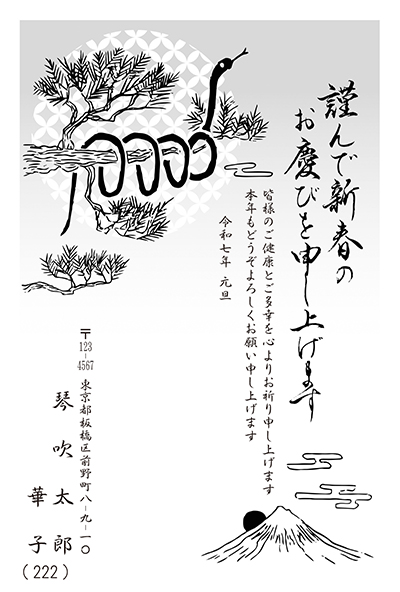 謹んで新春の
お慶びを申し上げます
皆様のご健康とご多幸を心よりお祈り申し上げます
本年もどうぞよろしくお願い申し上げます
令和七年 元旦
〒123-4567
東京都板橋区前野町八-九-一〇
琴吹太郎
華子
(222)